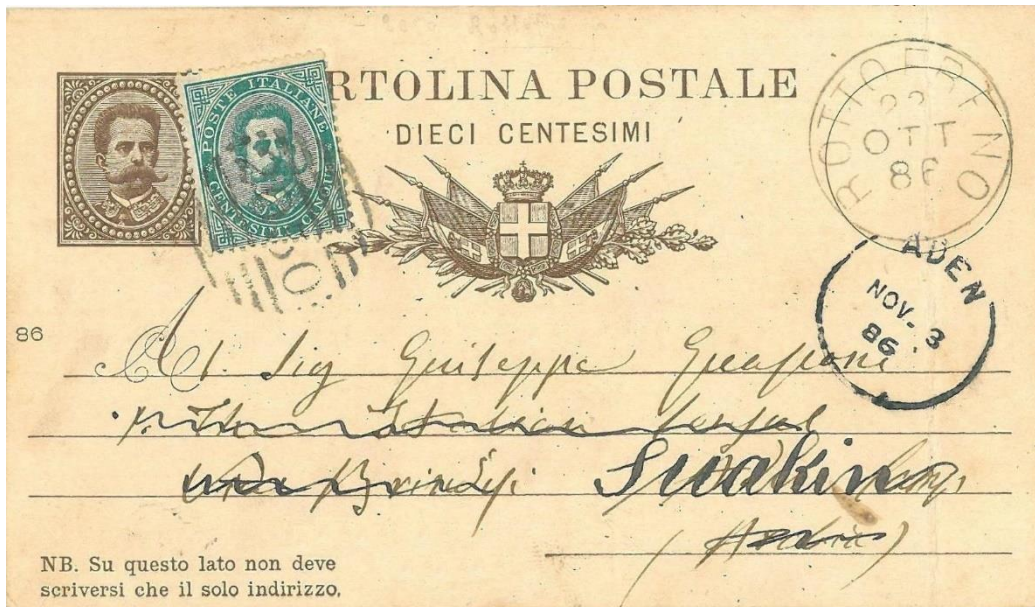 RTOLINA POSTALE
DIECI CENTESIMI
POSTE ITALIANE
CENTESIMI CINQUE
ROTTOFRENO
22
OTT
86
ADEN
NOV. 3
86
86
Al Sig Guiseppe
Italian
Brindisi Suakin
NB. Su questo lato non deve
scriversi che il solo indirizzo.